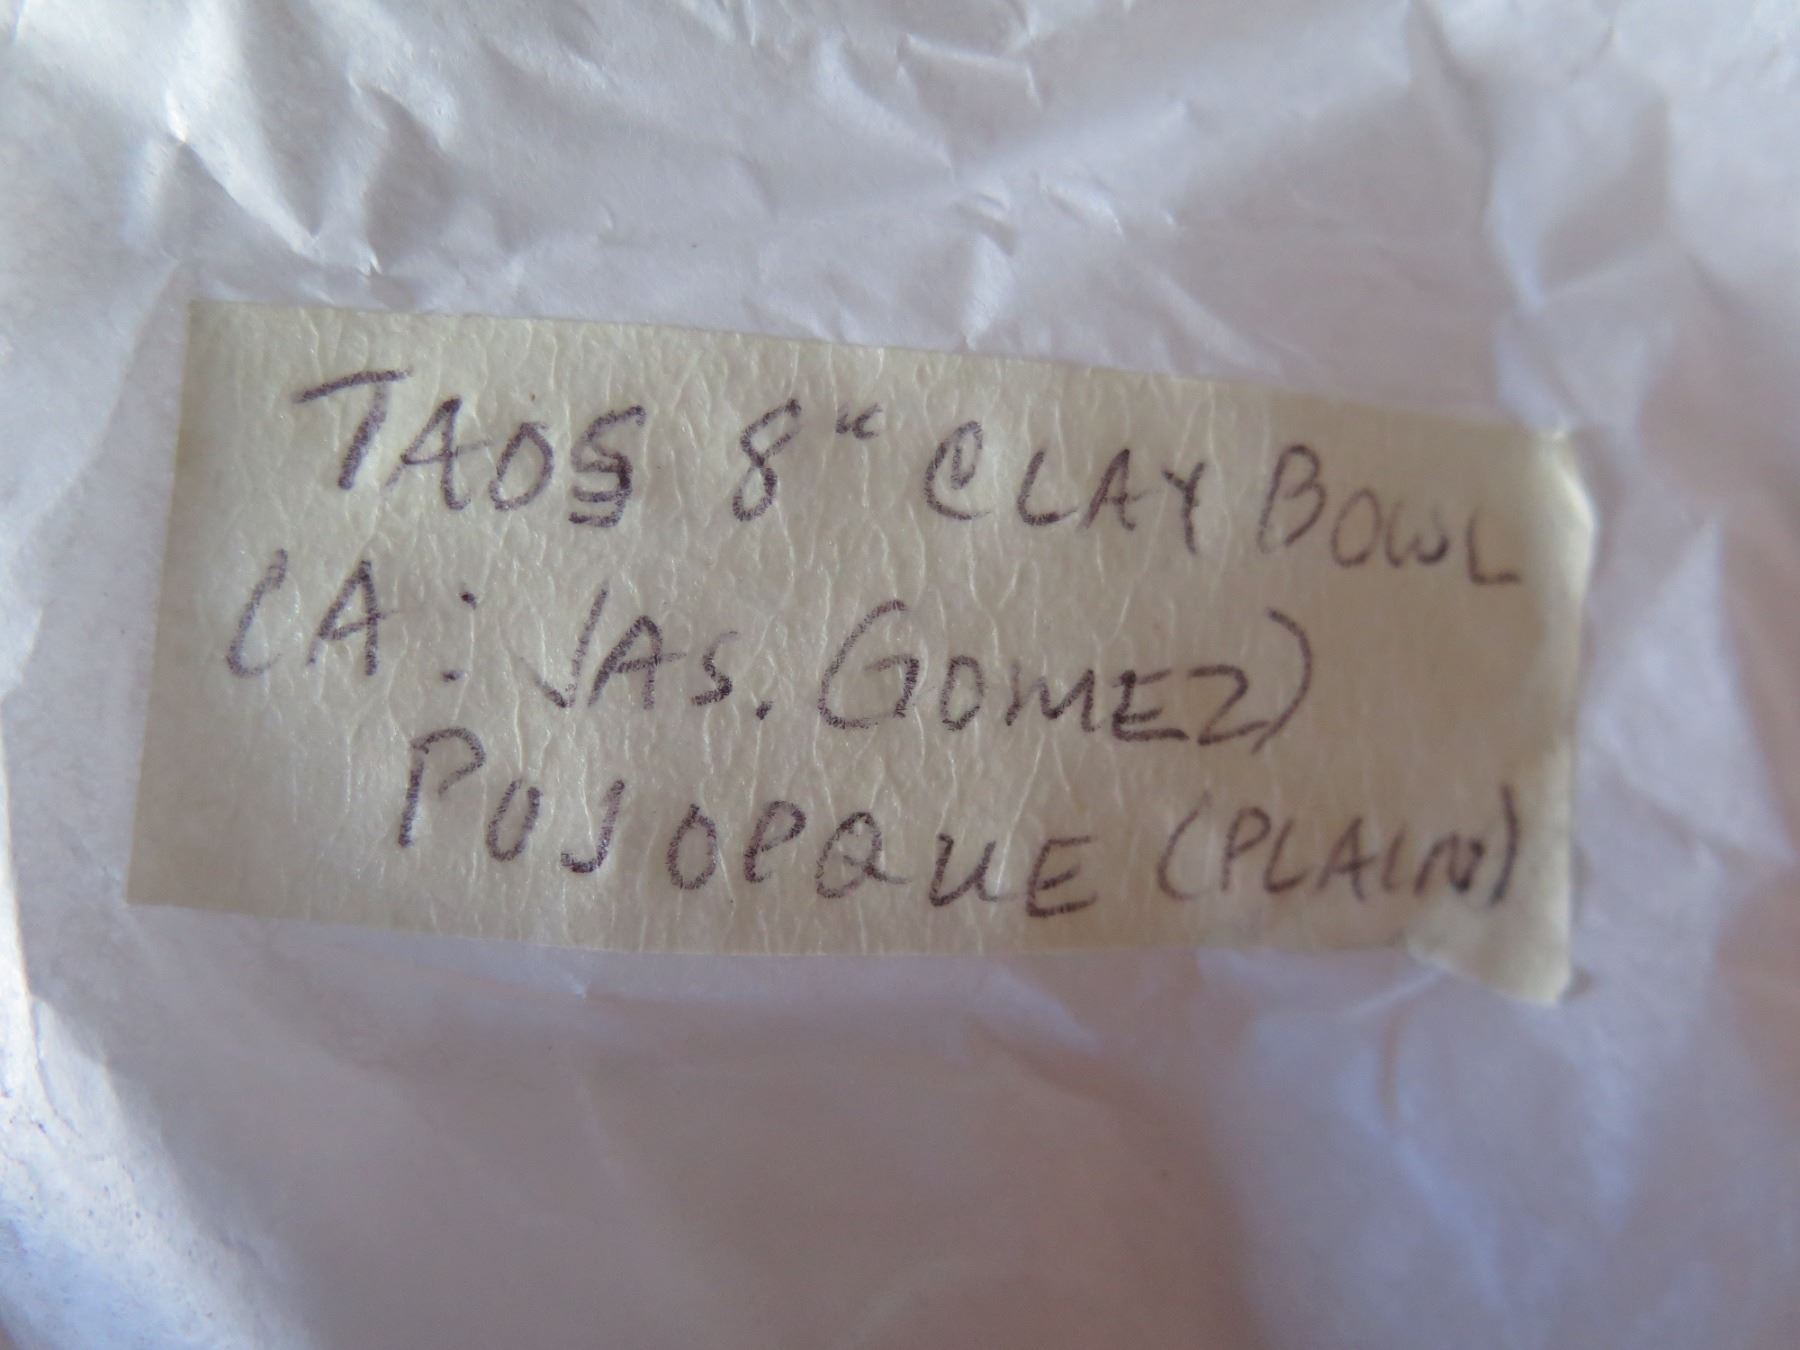 TAOS 8" CLAY BOWL
(A: JAS. GOMEZ)
POJOPQUE (PLAIN)